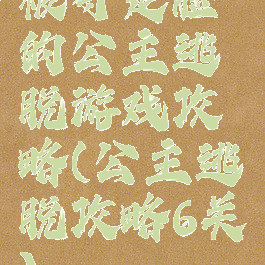 的公主逃
脱游戏攻
略(公主逃
脱攻略6关
)